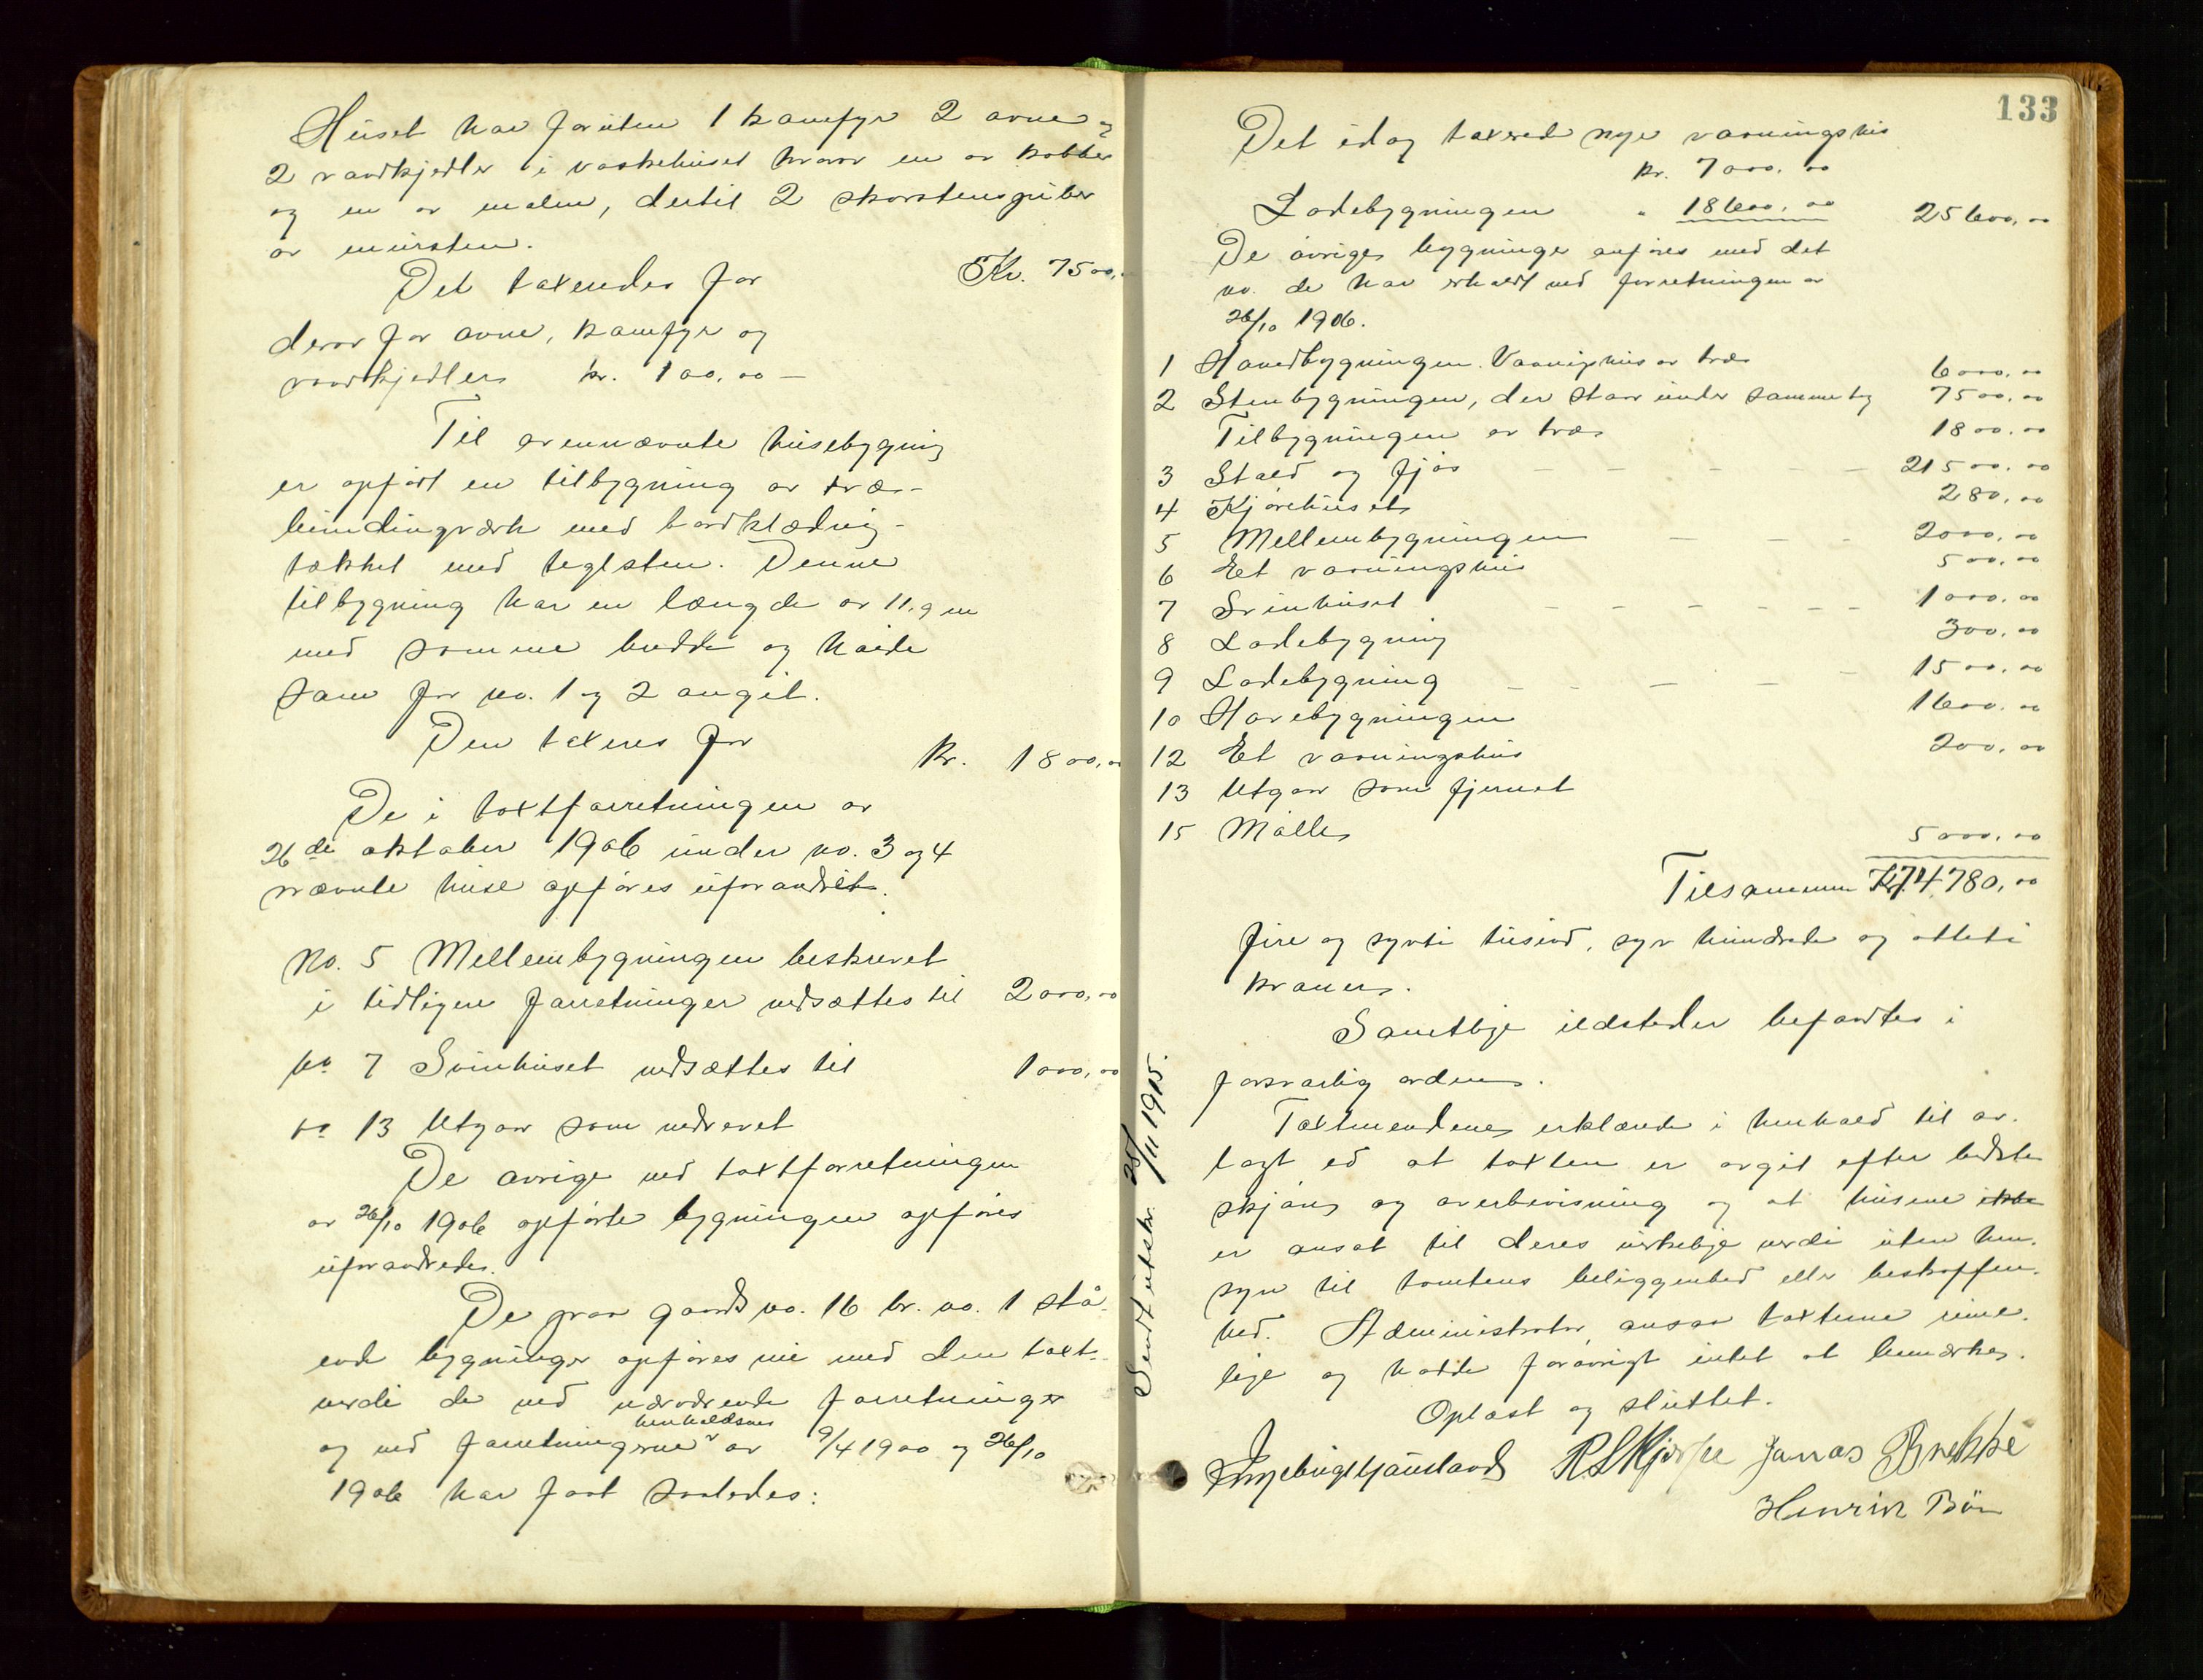 Huset har foruten 1 kamfyr 2 ovne og
2 vandkjedler i vaskehuset hvorav en av kobber
og en av malm, dertil 2 skorstensgruber
av mursten.
Det taxendes for Kr. 7500,
derav for ovne, kamfyr og
vandkjedlers kr. 100,00 —
Til ovennævnte husebygning
er opført en tilbygning av træ-
bindingverk med bordklædnig-
tækket med teglsten. Denne
tilbygning har en længde av 11,9 m
med samme bredde og høide
som for no. 1 og 2 angit.
Den taxeres for
Kr. 1800,00
De i taxtforretningen av
26de oktober 1906 under no. 3 og 4
nævnte huse opføres uforandret.
No. 5 Mellembygningen beskrevet
i tidligere forretninger nedsættes til 2000,00
No 7 Svinhuset nedsættes til 1000,00
No 13 Utgaar som nedrevet
De øvrige ved taxtforretningen
av 26/10 1906 opførte bygningen opføres
uforandrede.
De paa gaards no. 16 br. no. 1 stå-
ende bygninger opføres nu med den taxt-
verdi de ved nærværende forretninger
og ved forretningerne henholdsvis av 9/4 1900 og 26/10
1906 har faat saaledes:
133
Det idag taxered nye vaaningshus
kr. 7000,00
Ladebygningen " 18600,00 25600,00
De øvriges bygninger anføres med det
no. de har erholdt ved forretningen av
26/10 1906.
1 Hovedbygningen. Vaaningshus av træ 6000,00
2 Stenbygningen, der staar under samme tag 7500,00
Tilbygningen av træ 1800,00
3 Stald og fjøs — — — — — 21500,00
4 Kjørehuset 280,00
5 Mellembygningen — — — 2000,00
6 Et vaaningshus 500,00
7 Svinhuset — — — — — — 1000,00
8 Ladebygning 300,00
9 Ladebygning — — — — — 1500,00
10 Havebygningen 1600,00
12 Et vaaningshus 200,00
13 Utgaar som fjernet
15 Mølle 5000,00
Tilsammen Kr. 74780,00
fire og sytti tusind, syv hundrede og åtteti
kroner.
Samtlige ildsteder befandtes i
forsvarlig orden.
Taxtmændene erklærede i henhold til av-
lagt ed at taxten er avgit efter bedste
skjøn og overbevisning og at husene ikke
er ansat til deres virkelige verdi uten hen-
syn til tomtens beliggenhed eller beskaffen-
hed. Administrator ansaa taxterne rime-
lige og hadde forøvrigt intet at bemærke.
Oplæst og sluttet.
R S Kjørpe Jonas Brekke
Henrik Bøe
Sendt utskr. 25/11 1915.